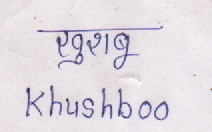 खुशबू
Khushboo